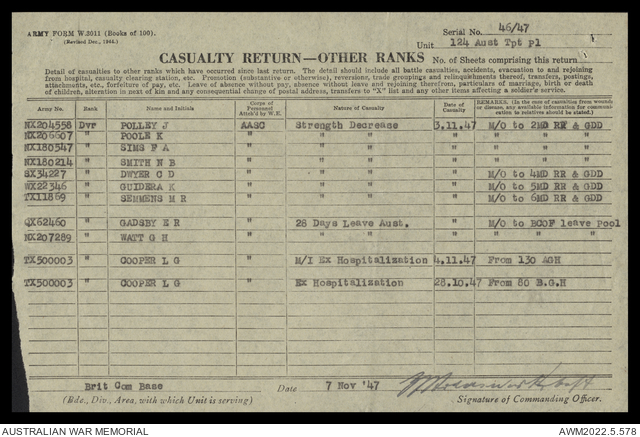 ARMY FORM W.3011 (Books of 100).
(Revised Dec., 1944.)
Serial No. 46/47
Unit 124 Aust Tpt Pl
CASUALTY RETURN—OTHER RANKS
No. of Sheets comprising this return
Detail of casualties to other ranks which have occurred since last return. The detail should include all battle casualties, accidents, evacuation to and rejoining
from hospital, casualty clearing station, etc. Promotion (substantive or otherwise), reversions, trade groupings and relinquishments thereof, transfers, postings,
attachments, etc., forfeiture of pay, etc. Leave of absence without pay, absence without leave and rejoining therefrom, particulars of marriage, birth or death
of children, alteration in next of kin and any consequential change of postal address, transfers to "X" list and any other items affecting a soldier's service.
Army No. Rank Name and Initials Corps of Personnel Attch'd by W.E. Nature of Casualty Date of Casualty REMARKS. (In the case of casualties from wounds or disease, any available information for communication to relatives should be stated.)
NX204558 Dvr POLLEY J AASC Strength Decrease 3.11.47 M/O to 2MD RR & GDD
NX206607 " POOLE K " " " " " "
NX180547 " SIMS F A " " " " " "
NX180214 " SMITH N B " " " " " "
SX34227 " DWYER C D " " " " M/O to 4MD RR & GDD
WX22346 " GUIDERA K " " " " M/O to 5MD RR & GDD
TX11869 " SEMMENS M R " " " " M/O to 6MD RR & GDD
QX62460 " GADSBY E R " 28 Days Leave Aust. " M/O to BCOF leave Pool
NX207289 " WATT G H " " " " " "
TX500003 " COOPER L G " M/I Ex Hospitalization 4.11.47 From 130 AGH
TX500003 " COOPER L G " Ex Hospitalization 28.10.47 From 80 B.G.H
Brit Com Base Date 7 Nov '47
(Bde., Div., Area, with which Unit is serving) Signature of Commanding Officer.
AUSTRALIAN WAR MEMORIAL AWM2022.5.578